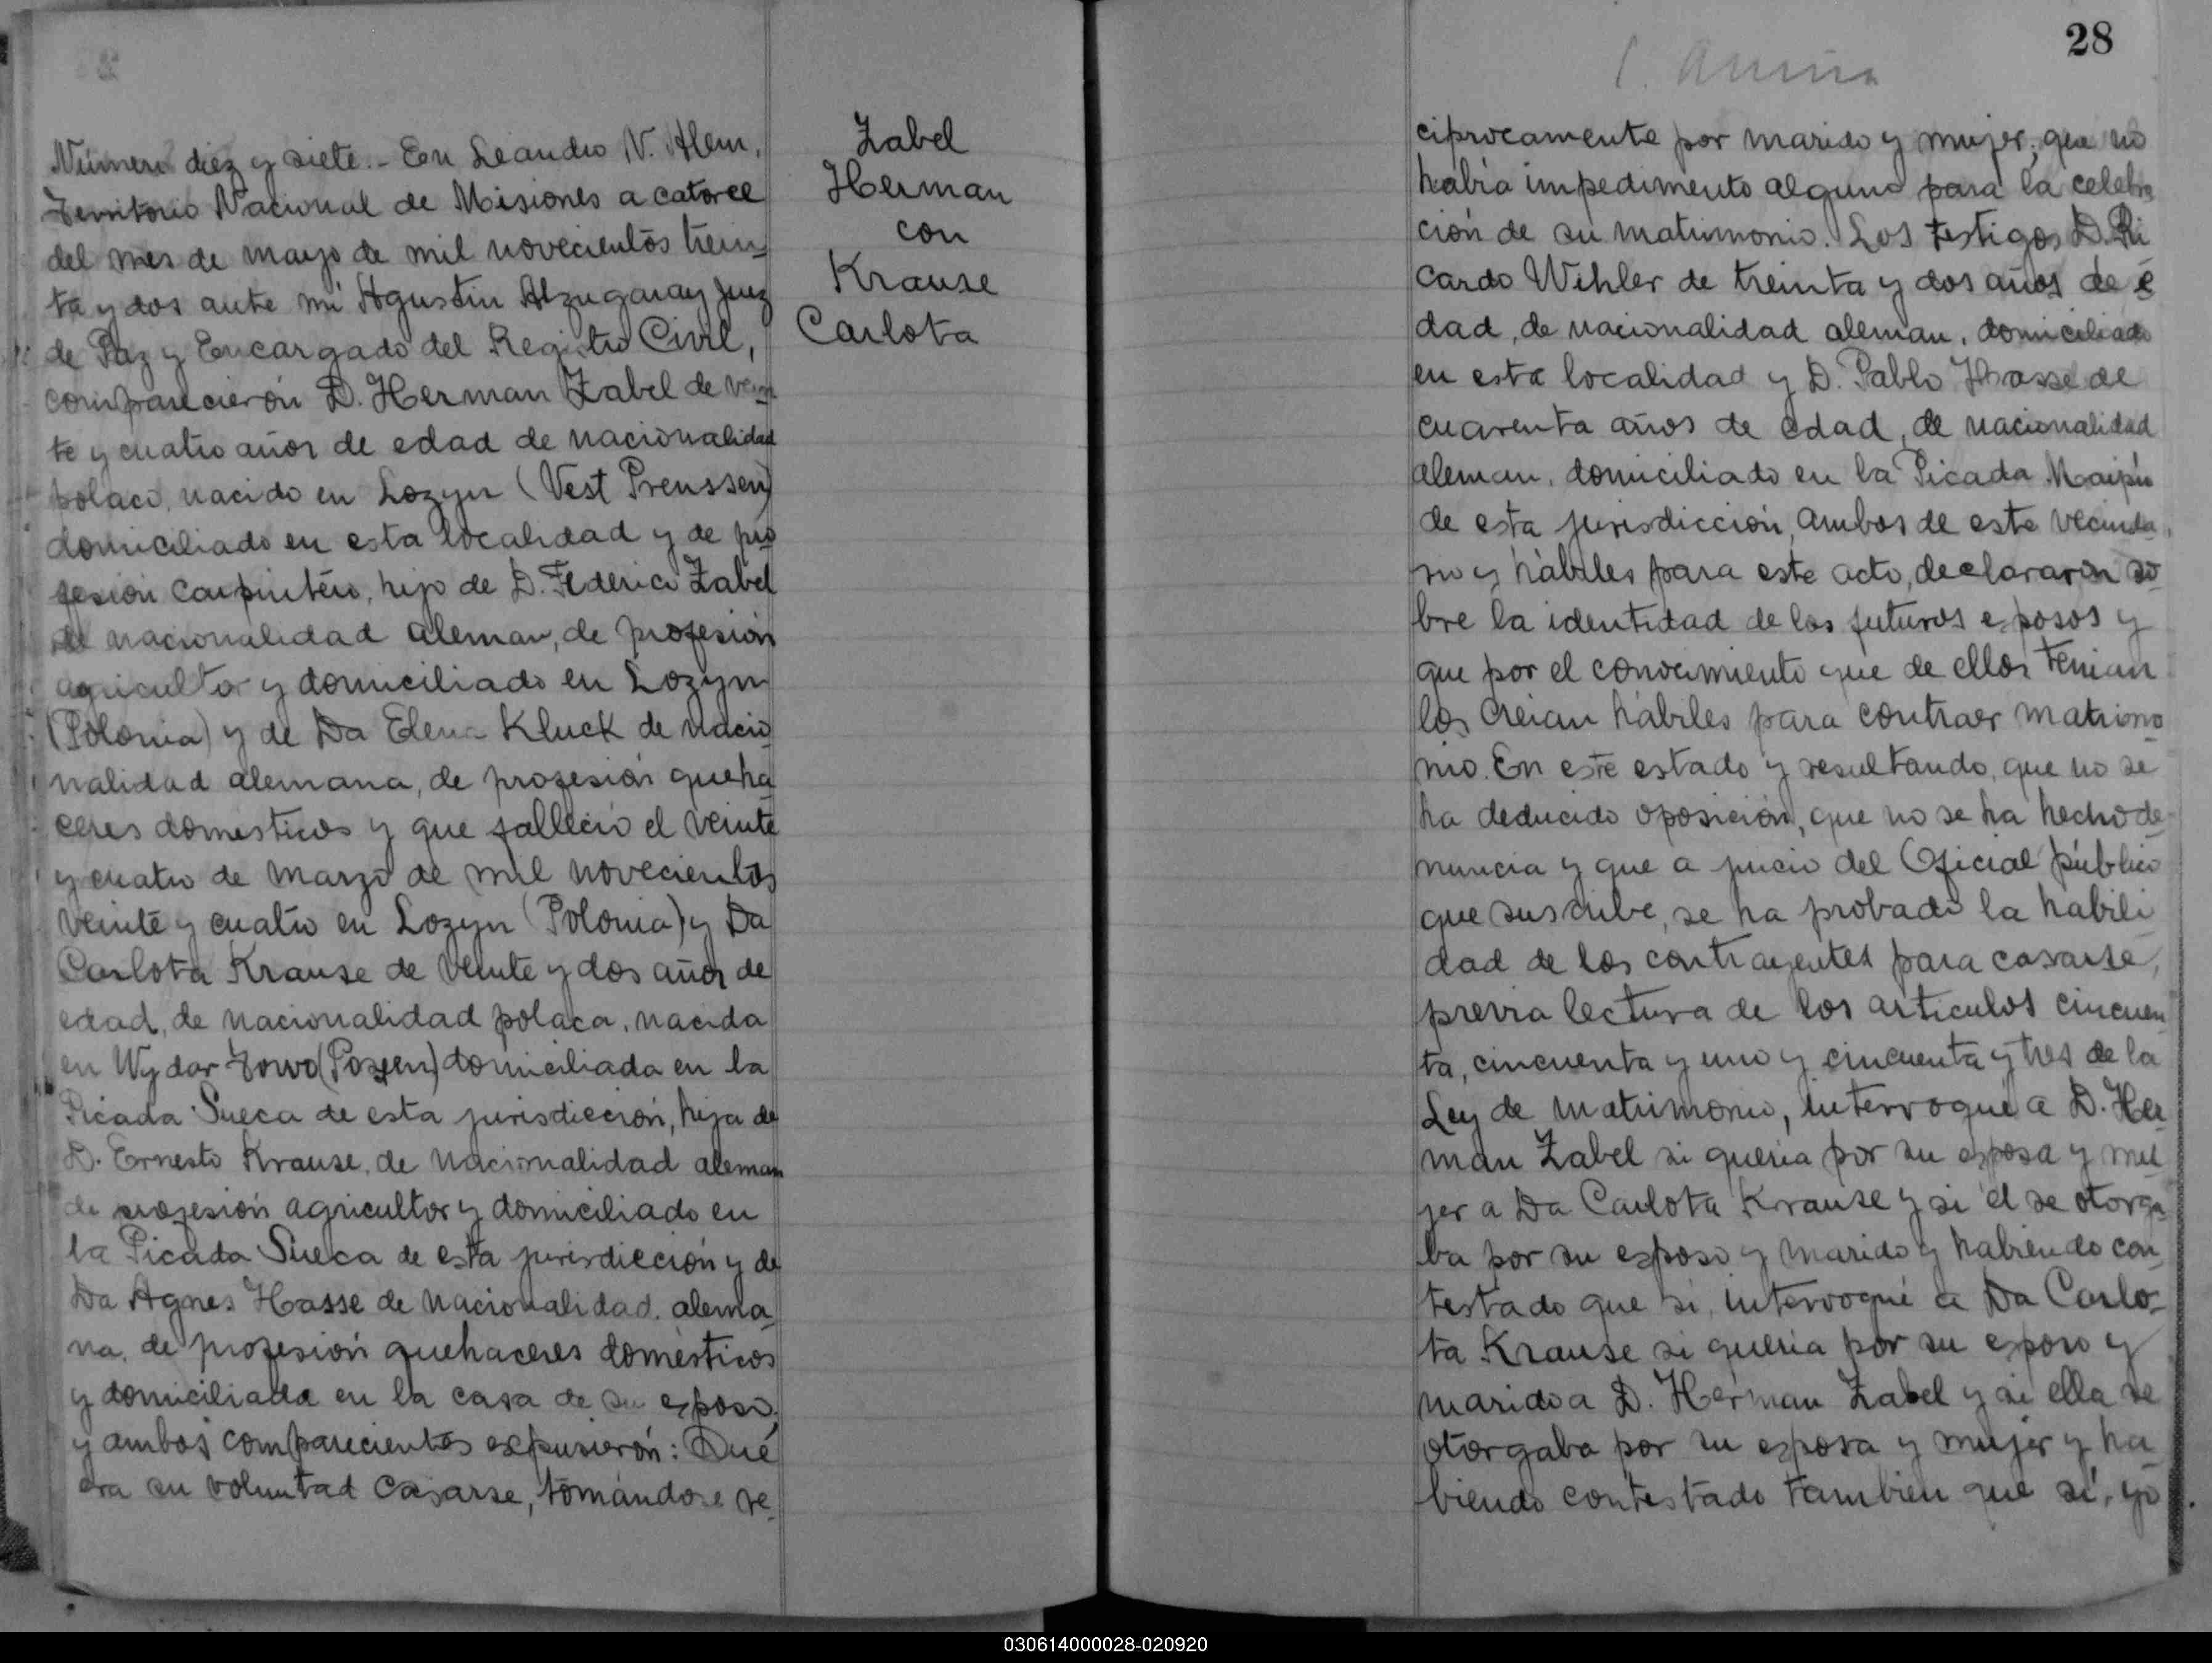 28
Número diez y siete.- En Leandro N. Alem,
Territorio Nacional de Misiones a catorce
del mes de mayo de mil novecientos trein-
ta y dos ante mí Agustin Alzugaray Juez
de Paz y Encargado del Registro Civil,
comparecierón D. Herman Zabel de vein-
te y cuatro años de edad de nacionalidad
polaco, nacido en Lozyn (Vest Preussen)
domiciliado en esta localidad y de pro-
fesión Carpintero, hijo de D. Federico Zabel
de nacionalidad aleman, de profesión
agricultor y domiciliado en Lozyn
(Polonia) y de Da Elena Kluck de nacio-
nalidad alemana, de profesión queha-
ceres domesticos y que falleció el veinte
y cuatro de marzo de mil novecientos
veinte y cuatro en Lozyn (Polonia) y Da
Carlota Krause de veinte y dos años de
edad, de nacionalidad polaca, nacida
en Wydar Zowo (Posen) domiciliada en la
Picada Sueca de esta jurisdiccion, hija de
D. Ernesto Krause, de nacionalidad aleman
de profesión agricultor y domiciliado en
la Picada Sueca de esta jurisdicción y de
Da Agnes Hasse de nacionalidad alema-
na, de profesión quehaceres domésticos
y domiciliada en la casa de su esposo,
y ambos comparecientes expusierón: Qué
era su voluntad casarse, tomándose re-
Zabel
Herman
con
Krause
Carlota
ciprocamente por marido y mujer, que no
había impedimento alguno para la celebra
ción de su matrimonio. Los testigos D. Ri
cardo Wihler de treinta y dos años de e
dad, de nacionalidad aleman, domiciliado
en esta localidad y D. Pablo Hasse de
cuarenta años de edad, de nacionalidad
aleman, domiciliado en la Picada Maipú
de esta jurisdicción, ambos de este vecinda-
rio y hábiles para este acto, declararón so-
bre la identidad de los futuros esposos y
que por el conocimiento que de ellos tenian
los creian hábiles para contraer matrimo-
nio. En este estado y resultando, que no se
ha deducido oposición, que no se ha hecho de-
nuncia y que a juicio del Oficial público
que suscribe, se ha probado la habili
dad de los contrayentes para casarse,
previa lectura de los articulos cincuen-
ta, cincuenta y uno y cincuenta y tres de la
Ley de matrimonio, interrogué a D. Her-
man Zabel si queria por su esposa y mu-
jer a Da Carlota Krause y si él se otorga-
ba por su esposo y marido y habiendo con-
testado que si, interrogué a Da Carlo-
ta Krause si quería por su esposo y
marido a D. Herman Zabel y si ella se
otorgaba por su esposa y mujer y ha
biendo contestado tambien que sí, yo
030614000028-020920